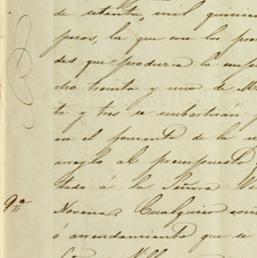 de setenta, mil quinien
pesos, la que con los pro
des que produzca la
cho treinta y uno de
ta y tres se embartirán
en el fomento de la
arreglo al presupuesto
tado á la Señora
9ª Novena, Cualquier
ó arrendamiento que se